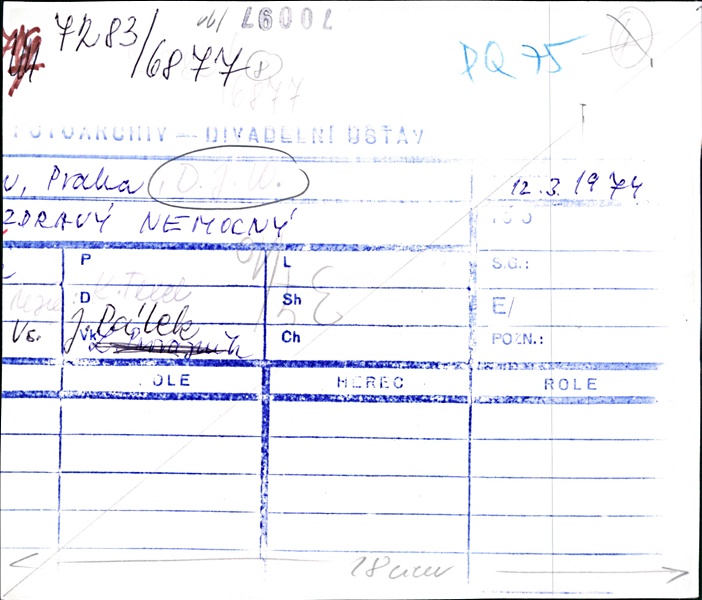 7283/6877 8
DQ 75
6877
FOTOARCHIV — DIVADELNÍ ÚSTAV
, Praha (D.J.W.) 12.3.1974
ZDRAVÝ NEMOCNÝ
P L S.G.:
D Sh E/
Vs. J. Bálek Vk Ch POZN.:
OLE HEREC ROLE
18 cm